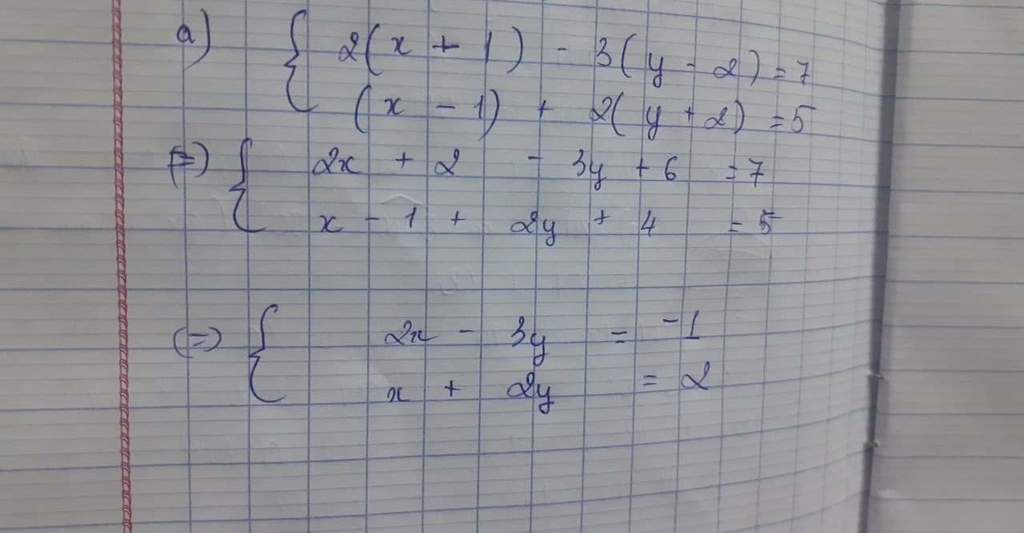 a) { 2(x + 1) - 3(y - 2) = 7
(x - 1) + 2(y + 2) = 5
(=) { 2x + 2 - 3y + 6 = 7
x - 1 + 2y + 4 = 5
(=) { 2x - 3y = -1
x + 2y = 2